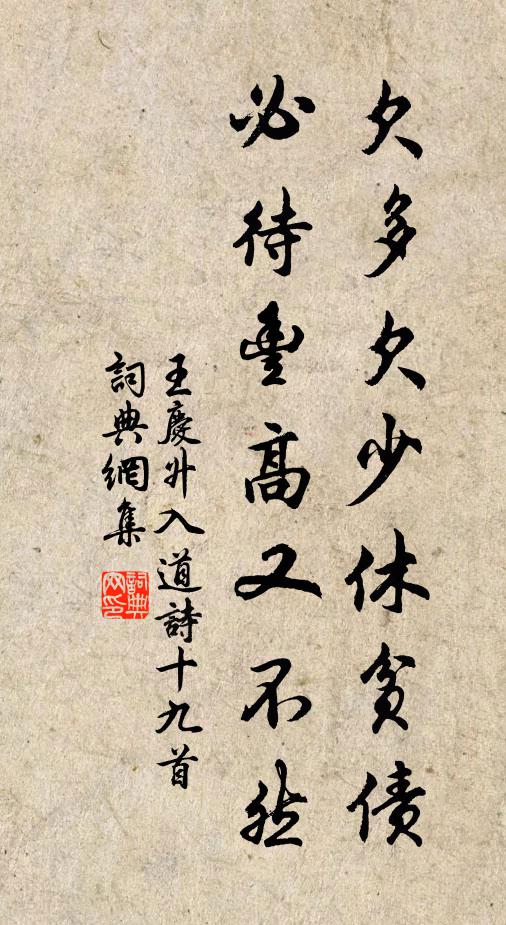 欠多欠少休貧債
必待豐高又不然
王慶升入道詩十九首
詞典網集
詞典網印